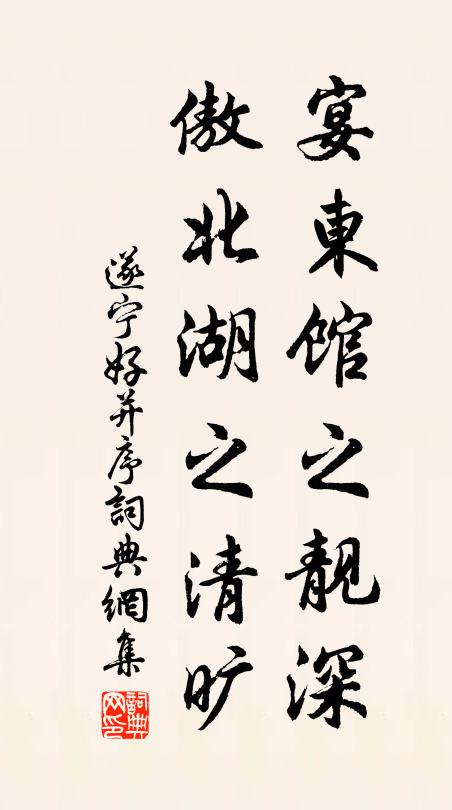 宴東馆之靓深
傲北湖之清旷
遂宁好并序詞典網集
詞典网印